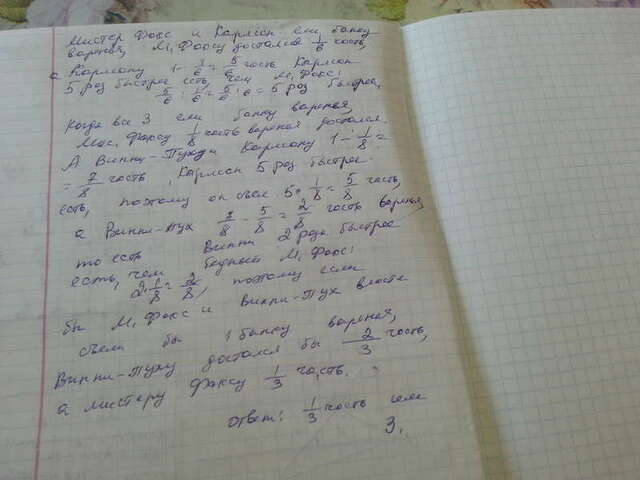 Мистер Фокс и Карлсон ели банку
варенья, М. Фоксу досталось 1/6 часть,
а Карлсону 1 - 1/6 = 5/6 часть Карлсон
5 раз быстрее есть, чем М. Фокс:
5/6 : 1/6 = 5/6 · 6 = 5 раз быстрее,
Когда все 3 ели банку варенья,
Мис. Фоксу 1/8 часть варенья достался.
А Винни-Пуху и Карлсону 1 - 1/8 =
= 7/8 часть. Карлсон 5 раз быстрее
есть, поэтому он съел 5 · 1/8 = 5/8 часть,
а Винни-Пух 7/8 - 5/8 = 2/8 часть варенья,
то есть Винни 2 раза быстрее
есть, чем бедный М. Фокс:
2 · 1/8 = 2/8, поэтому если
бы М. Фокс и Винни-Пух вместе
съели бы 1 банку варенья,
Винни-Пуху достался бы 2/3 часть,
а мистеру Фоксу 1/3 часть.
ответ: 1/3 часть или
3.